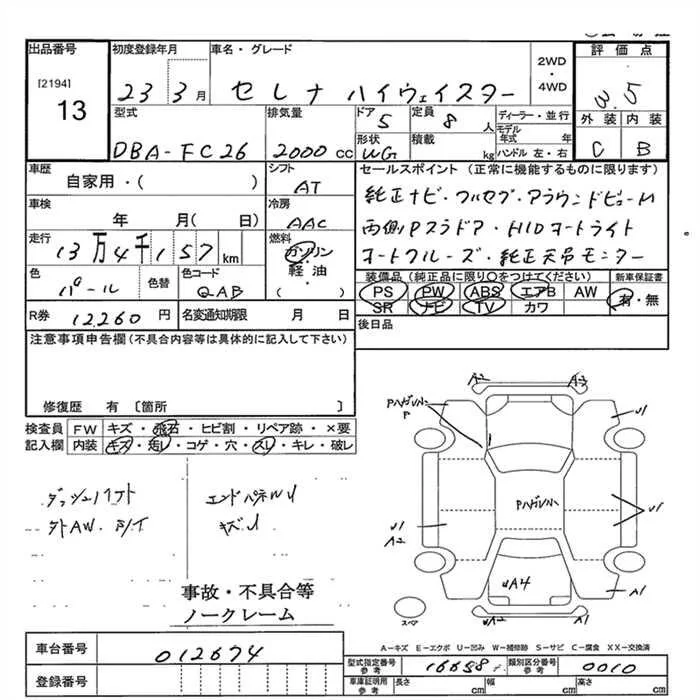 出品番号
[2194]
13
初度登録年月
23 3月
車名・グレード
セレナ ハイウェイスター
2WD
・
4WD
評価点
3.5
外装 内装
C B
型式
DBA-FC26
排気量
2000 CC
ドア
5
定員
8 人
形状
WG
積載
kg
ディーラー・並行
モデル年式 年
ハンドル 左・右
車歴
自家用・( )
シフト
AT
車検
年 月( 日)
冷房
AAC
走行
13万4千157km
燃料
ガソリン
・
軽油
( )
色
パール
色替
色コード
QAB
R券 12,260 円
名変通知期限 月 日
セールスポイント (正常に機能するものに限ります)
純正ナビ・フルセグ・アラウンドビューM
両側Pスラドア・HIDオートライト
オートクルーズ・純正天吊モニター
装備品(純正品に限り○をつけてください)
新車保証書
PS PW ABS エアB AW
SR ナビ TV カワ
有・無
後日品
注意事項申告欄(不具合内容等は具体的に記入して下さい)
修復歴 有〔箇所 〕
検査員記入欄
FW キズ・飛石・ヒビ割・リペア跡・×要
内装 キズ・汚レ・コゲ・穴・スレ・キレ・破レ
外AW
エンドパネルU
キズU
事故・不具合等
ノークレーム
A2
A2
PハゲU
P
U1
PハゲU
U1
U1
A2
UA4
A1
UA2
スペア
A-キズ E-エクボ U-凹み W-補修跡 S-サビ C-腐食 XX-交換済
車台番号
012674
登録番号
型式指定番号
参考
16658
類別区分番号
参考
0010
車庫証明用
参考
長さ cm
幅 cm
高さ cm